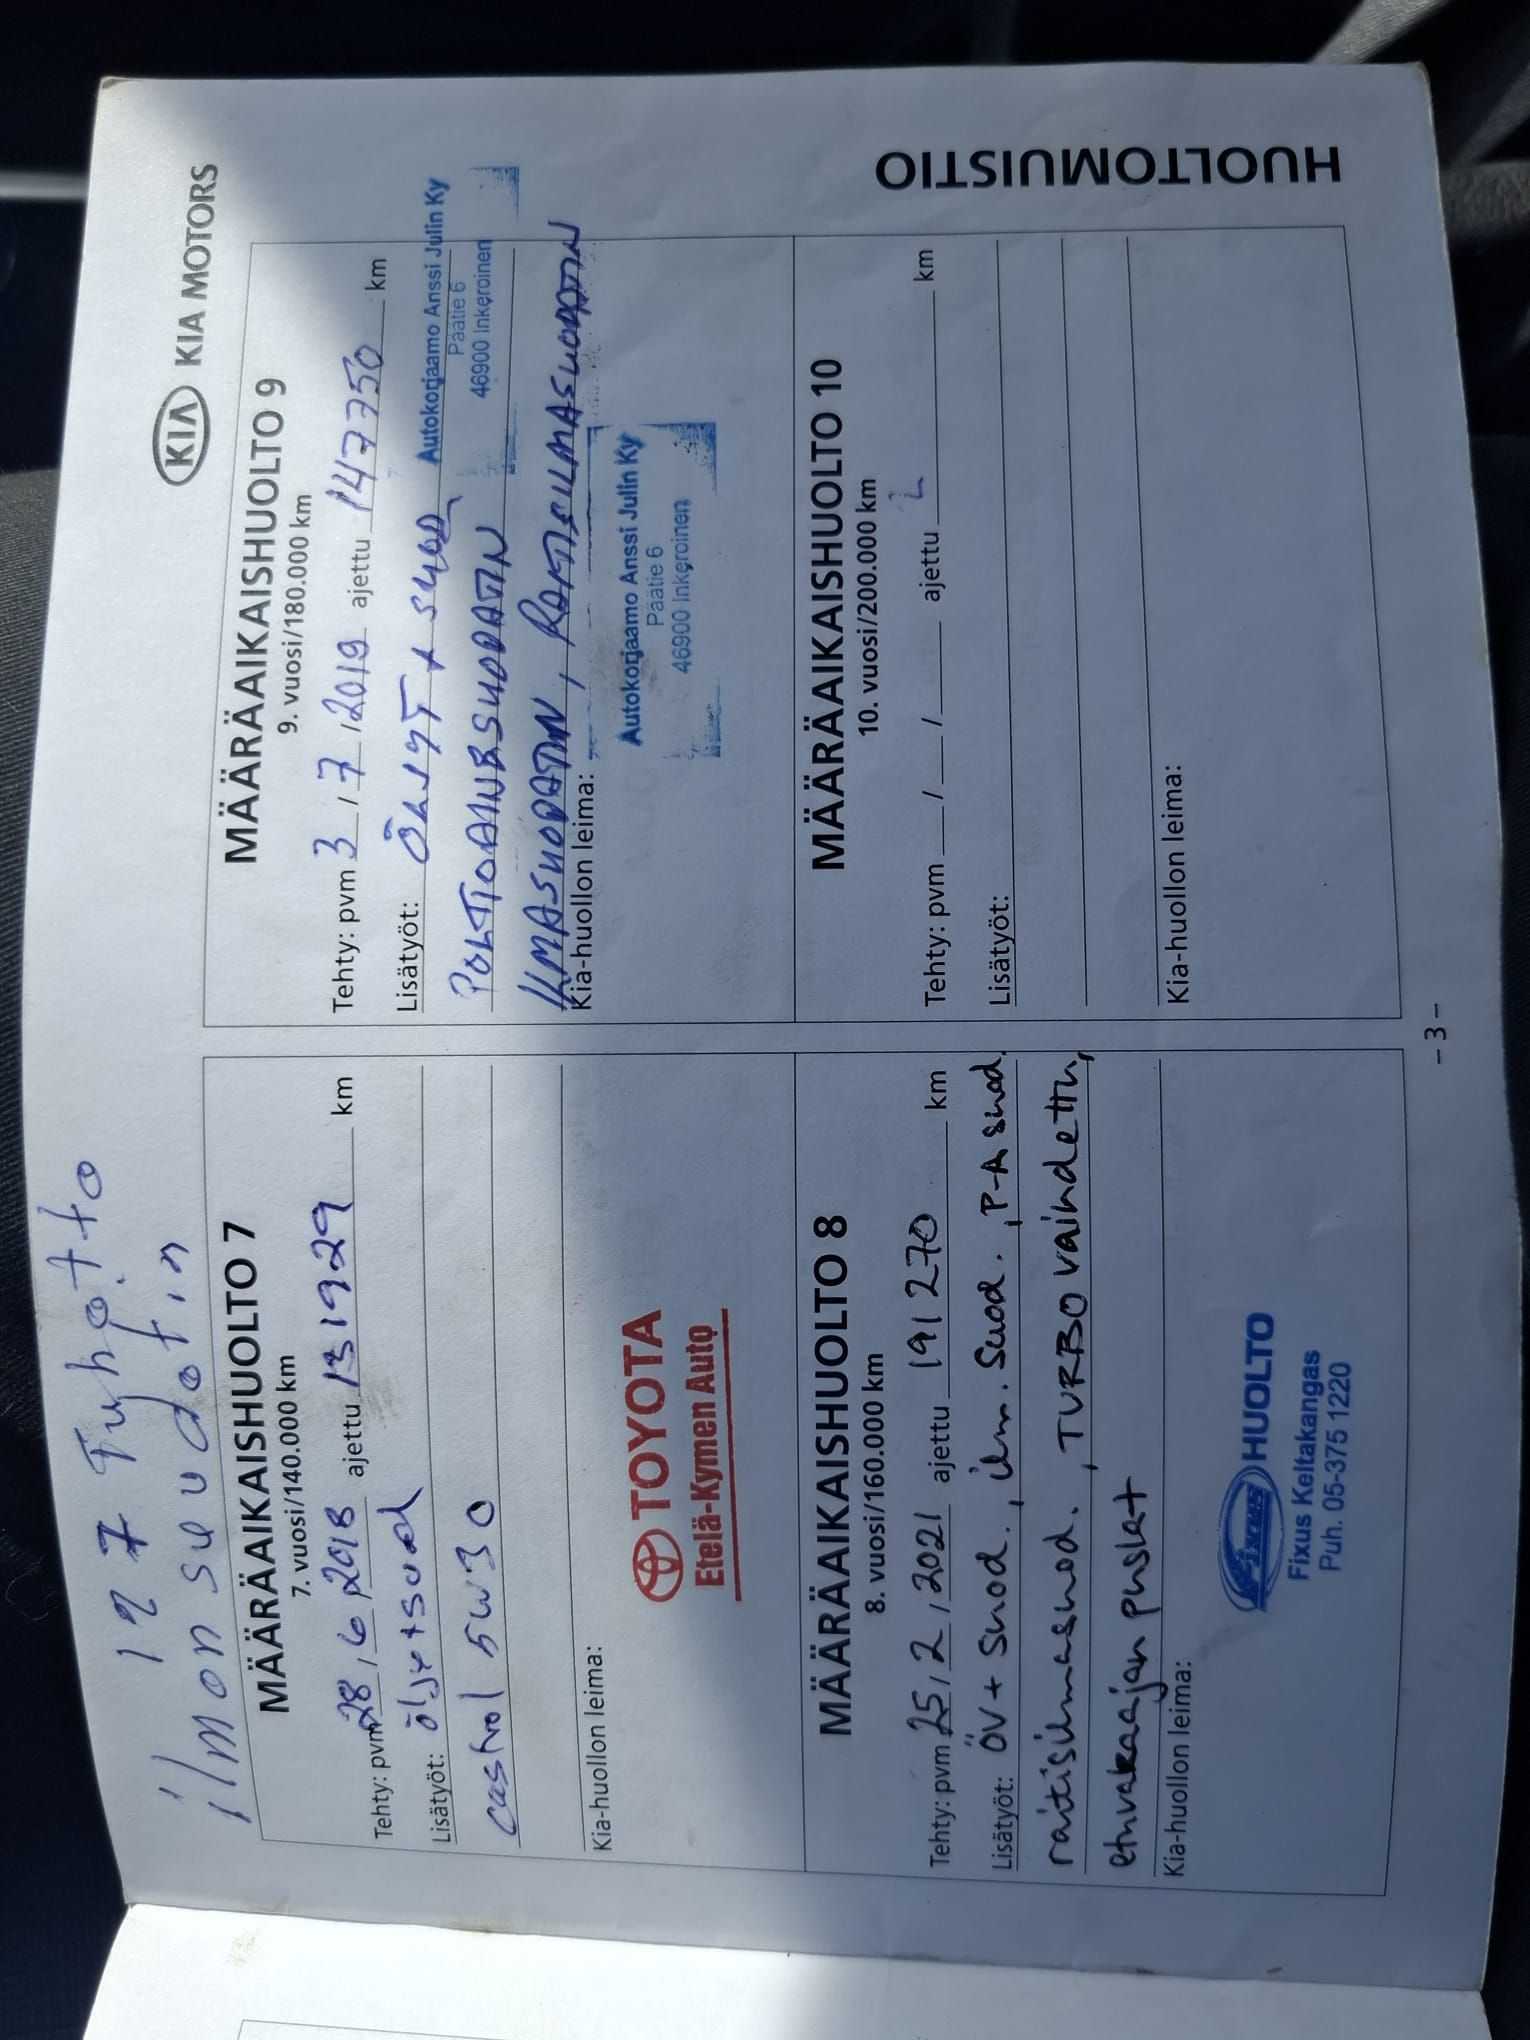 KIA KIA MOTORS
ilmonsuudotin
MÄÄRÄAIKAISHUOLTO 7
7. vuosi/140.000 km
Tehty: pvm 28 / 6 / 2018 ajettu 131929 km
Lisätyöt: öljy + suod
castrol 5W30
Kia-huollon leima:
TOYOTA
Etelä-Kymen Auto
MÄÄRÄAIKAISHUOLTO 8
8. vuosi/160.000 km
Tehty: pvm 25 / 2 / 2021 ajettu 191 270 km
Lisätyöt: ÖV + suod., ilm. suod., P-A suod.
raitisilmasuod., TURBO vaihdettu,
etuvakaajan puslat
Kia-huollon leima:
fixus HUOLTO
Fixus Keltakangas
Puh. 05-375 1220
MÄÄRÄAIKAISHUOLTO 9
9. vuosi/180.000 km
Tehty: pvm 3 / 7 / 2019 ajettu 147750 km
Lisätyöt: ÖLJYT + SUOD,
POLTTOAINESUODATIN
ILMASUODATIN, RAITISILMASUODATIN
Autokorjaamo Anssi Julin Ky
Päätie 6
46900 Inkeroinen
Kia-huollon leima:
Autokorjaamo Anssi Julin Ky
Päätie 6
46900 Inkeroinen
MÄÄRÄAIKAISHUOLTO 10
10. vuosi/200.000 km
Tehty: pvm / / ajettu km
Lisätyöt:
Kia-huollon leima:
HUOLTOMUISTIO
- 3 -